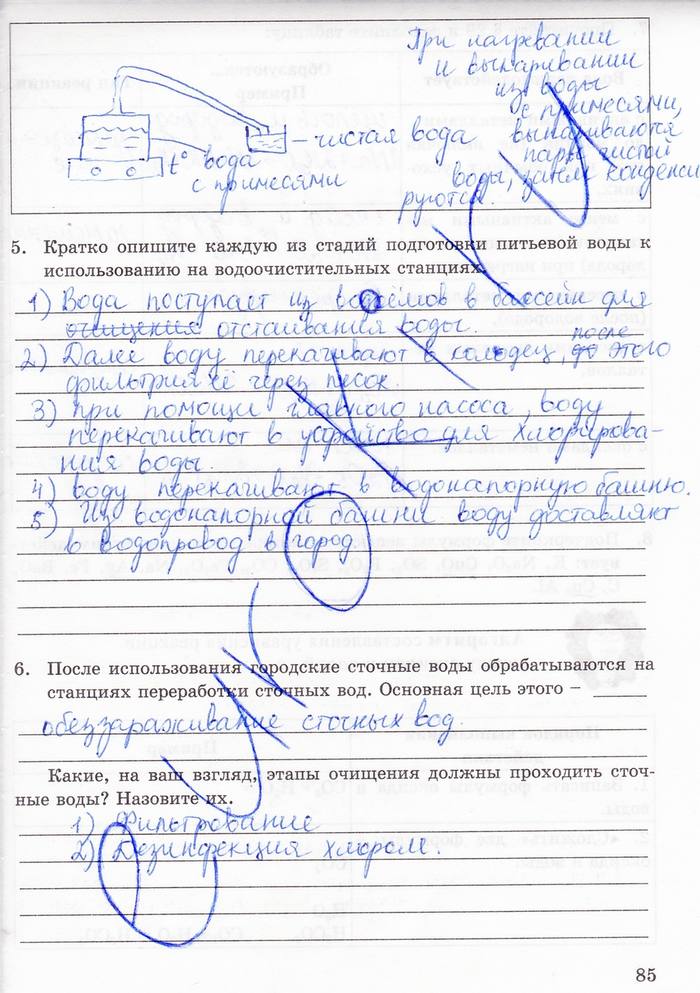 При нагревании
и выпаривании
из воды
с примесями,
– чистая вода выпариваются
пары чистой
t° вода
с примесями
воды, затем конденси
руются.
5. Кратко опишите каждую из стадий подготовки питьевой воды к
использованию на водоочистительных станциях.
1) Вода поступает из водоёмов в бассейн для
очищения отстаивания воды.
2) Далее воду перекачивают в колодец, до после этого
фильтрия её через песок.
3) при помощи главного насоса, воду
перекачивают в устройство для хлорирова-
ния воды.
4) воду перекачивают в водонапорную башню.
5) Из водонапорной башни воду доставляют
в водопровод в город
6. После использования городские сточные воды обрабатываются на
станциях переработки сточных вод. Основная цель этого –
обеззараживание сточных вод.
Какие, на ваш взгляд, этапы очищения должны проходить сточ-
ные воды? Назовите их.
1) Фильтрование
2) Дезинфекция хлором.
85